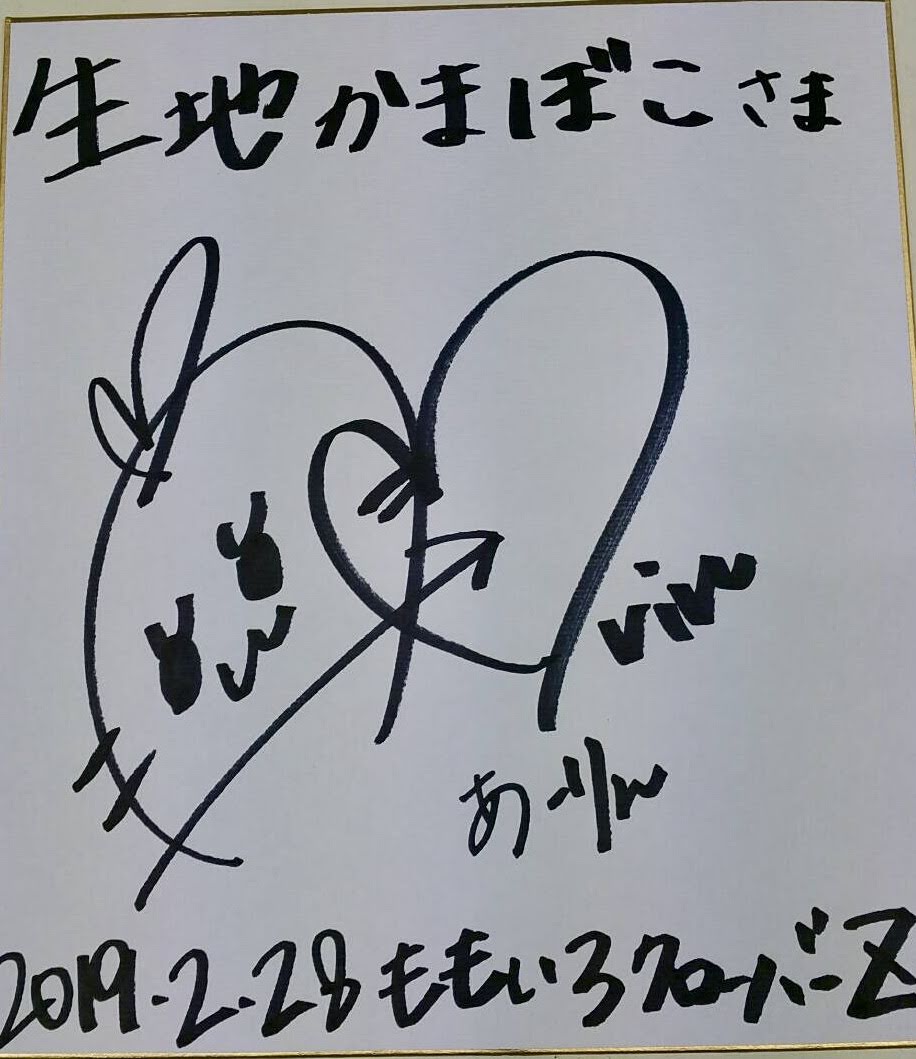 生地かまぼこさま
rin
あーりん
2019.2.28ももいろクローバーZ